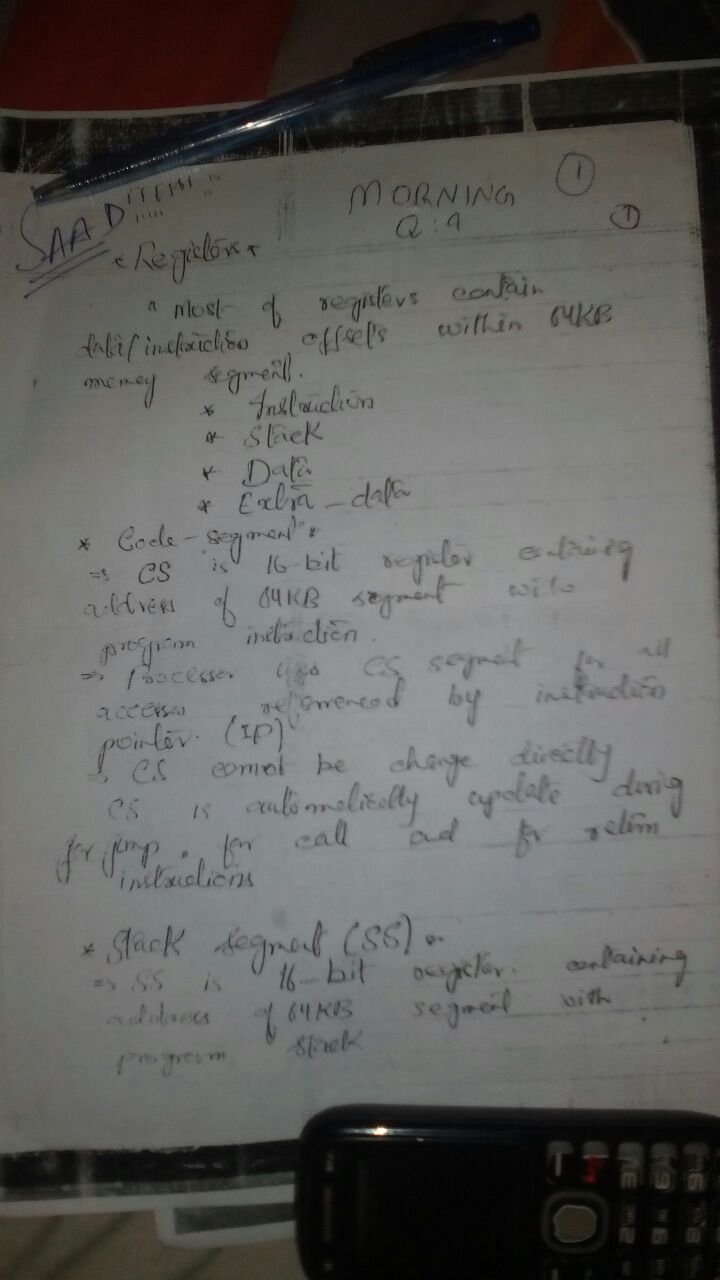 MORNING ①
Q:1 ①
SAAD
* Registers *
" most of registers contain
data/instruction offsets within 64KB
memey segment.
* Instruction
* Stack
* Data
* Extra-data
* Code-segment:
⇒ CS is 16-bit register containing
address of 64KB segment with
program instruction.
⇒ Processor uses CS segment for all
accesses referenced by instruction
pointer (IP)
⇒ CS connot be change directly
CS is automatically update during
for jump, for call and for return
instructions
* Stack segment (SS)
⇒ SS is 16-bit register. containing
address of 64KB segment with
program stack